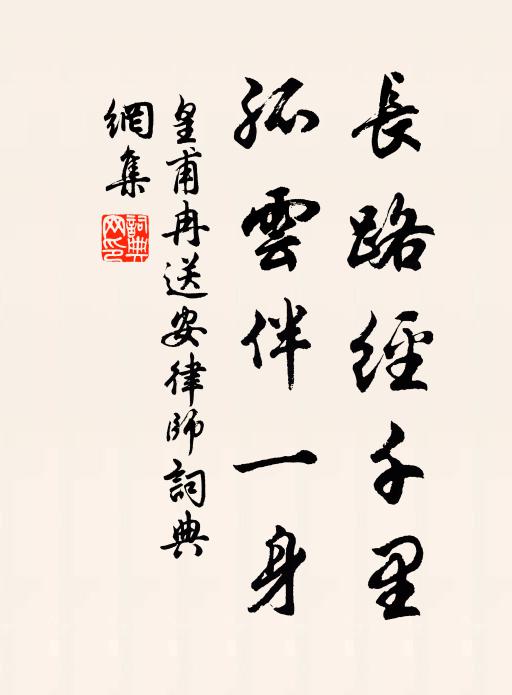 長路經千里
孤雲伴一身
皇甫冉送安律師詞典
網集
詞典網印